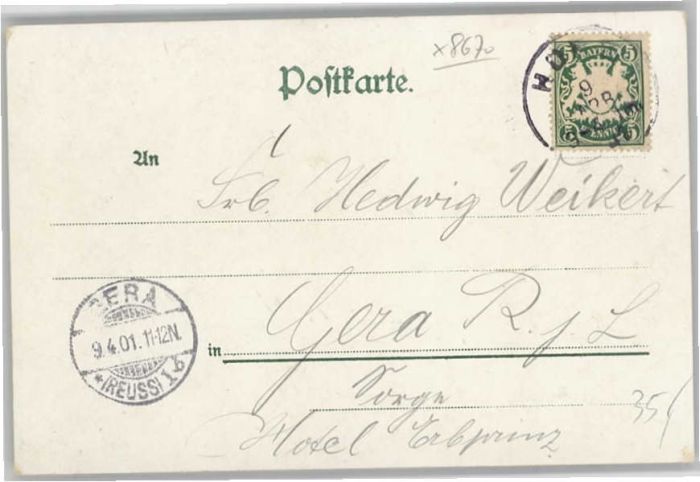 x8670
Postkarte.
5 BAYERN 5
9 APR
An
Frl. Hedwig Weikert
GERA
9.4.01. 11-12N.
*(REUSS)1b
in Gera R. j. L
Sorge 35
Hotel Erbprinz